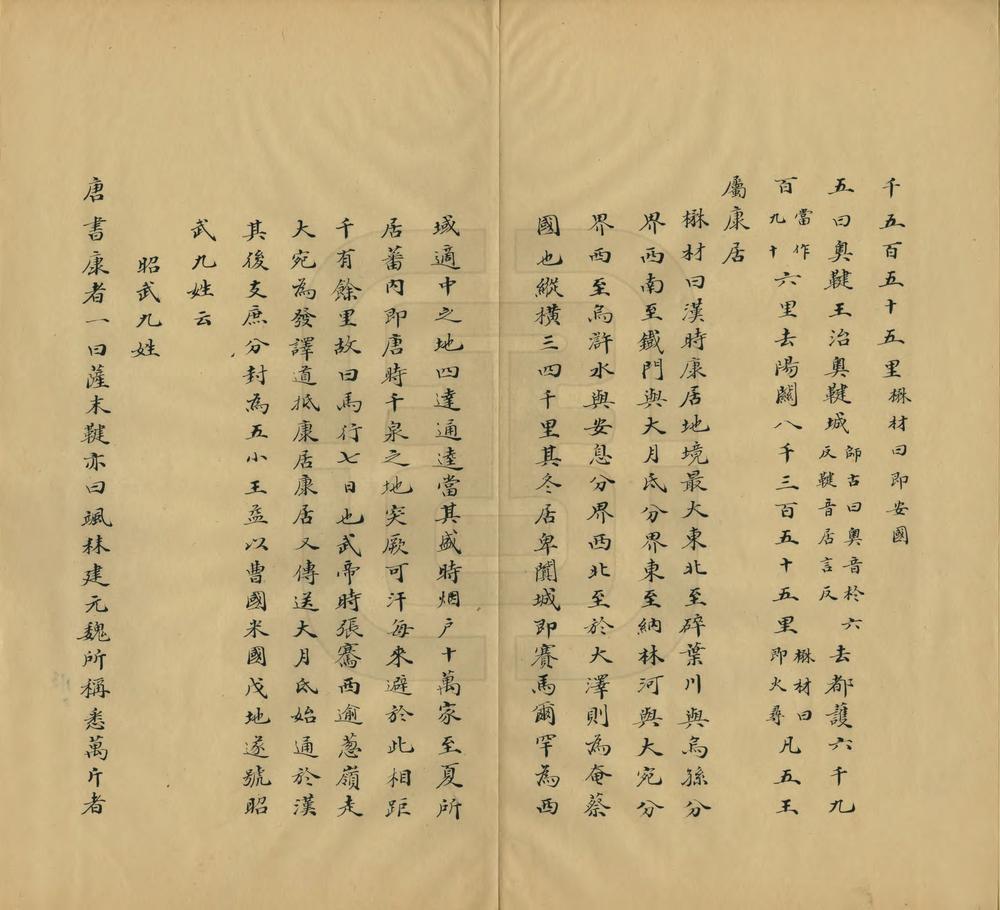 千五百五十五里楙材曰即安國
五曰奧鞬王治奧鞬城師古曰奧音於六反鞬音居言反去都護六千九
百當作九十六里去陽關八千三百五十五里楙材曰即火尋凡五王
屬康居
楙材曰漢時康居地境最大東北至碎葉川與烏孫分
界西南至鐵門與大月氐分界東至納林河與大宛分
界西至烏滸水與安息分界西北至於大澤則為奄蔡
國也縱橫三四千里其冬居卑闐城即賽馬爾罕為西
域適中之地四達通逵當其盛時烟户十萬家至夏所
居蕃內即唐時千泉之地突厥可汗每來避於此相距
千有餘里故曰馬行七日也武帝時張騫西逾蔥嶺走
大宛為發譯道抵康居康居又傳送大月氐始通於漢
其後支庶分封為五小王益以曹國米國戊地遂號昭
武九姓云
昭武九姓
唐書康者一曰薩末鞬亦曰颯秣建元魏所稱悉萬斤者